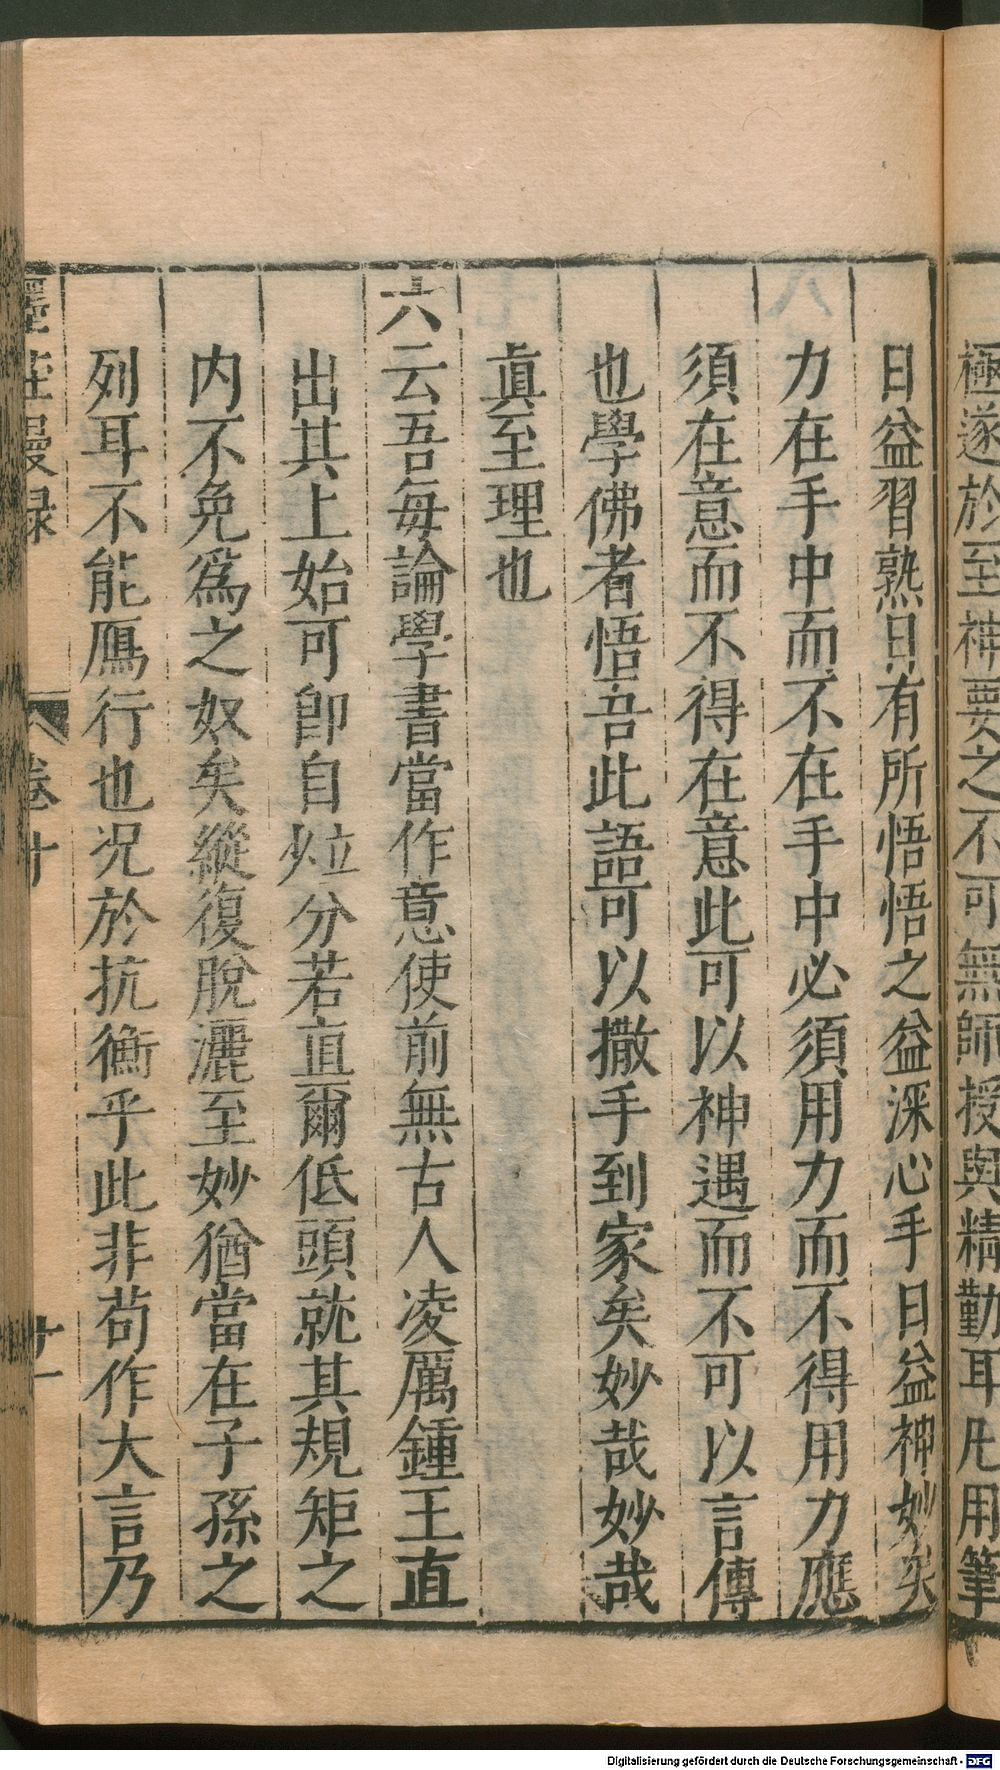 極遂於至神要之不可無師授與精勤耳凡用筆
日益習熟日有所悟悟之益深心手日益神妙矣
力在手中而不在手中必須用力而不得用力應
須在意而不得在意此可以神遇而不可以言傳
也學佛者悟吾此語可以撒手到家矣妙哉妙哉
眞至理也
六云吾每論學書當作意使前無古人凌厲鍾王直
出其上始可卽自𤆵分若直爾低頭就其規矩之
内不免爲之奴矣縱復脫灑至妙猶當在子孫之
列耳不能鴈行也况於抗衡乎此非苟作大言乃
墨莊漫録 卷十 十一
Digitalisierung gefördert durch die Deutsche Forschungsgemeinschaft - DFG